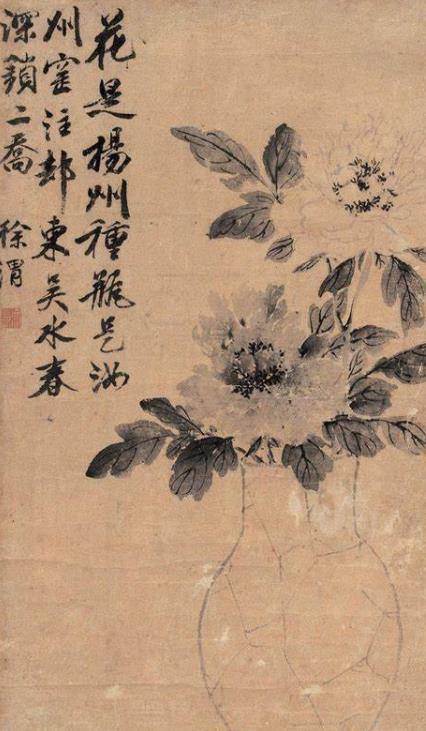 花是揚州種瓶是汝
州窑注却東吳水春
深鎖二喬 徐渭